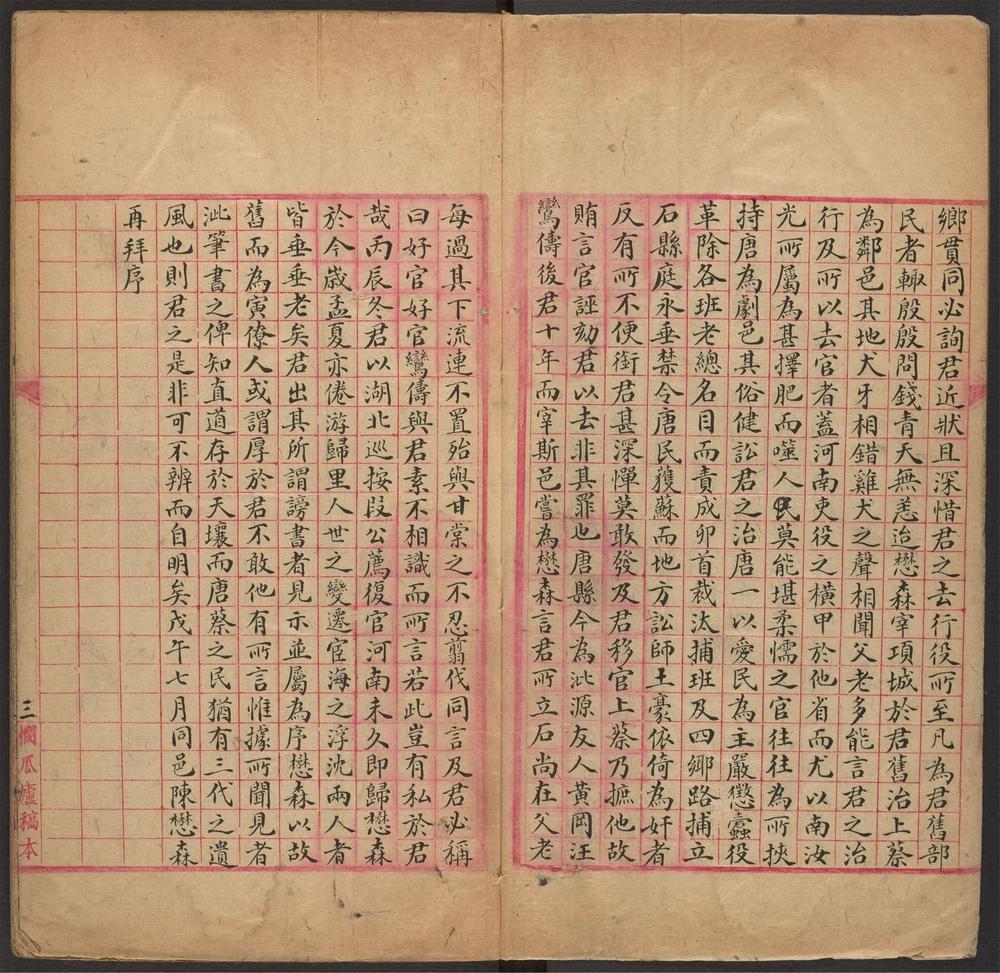 鄉貫同必詢君近狀且深惜君之去行役所至凡為君舊部
民者輙殷殷問錢青天無恙迨懋森宰項城於君舊治上蔡
為鄰邑其地犬牙相錯雞犬之聲相聞父老多能言君之治
行及所以去官者蓋河南吏役之橫甲於他省而尤以南汝
光所屬為甚擇肥而噬人民莫能堪柔懦之官往往為所挾
持唐為劇邑其俗健訟君之治唐一以愛民為主嚴懲蠹役
革除各班老總名目而責成卯首裁汰捕班及四鄉路捕立
石縣庭永垂禁令唐民獲蘇而地方訟師土豪依倚為奸者
反有所不便銜君甚深憚莫敢發及君移官上蔡乃摭他故
賄言官誣劾君以去非其罪也唐縣今為沘源友人黃岡汪
鸞儔後君十年而宰斯邑嘗為懋森言君所立石尚在父老
每過其下流連不置殆與甘棠之不忍翦伐同言及君必稱
曰好官好官鸞儔與君素不相識而所言若此豈有私於君
哉丙辰冬君以湖北巡按段公薦復官河南未久即歸懋森
於今歲孟夏亦倦游歸里人世之變遷宦海之浮沈兩人者
皆垂垂老矣君出其所謂謗書者見示並屬為序懋森以故
舊而為寅僚人或謂厚於君不敢他有所言惟據所聞見者
泚筆書之俾知直道存於天壤而唐蔡之民猶有三代之遺
風也則君之是非可不辨而自明矣戊午七月同邑陳懋森
再拜序
三
憪瓜廬稿本